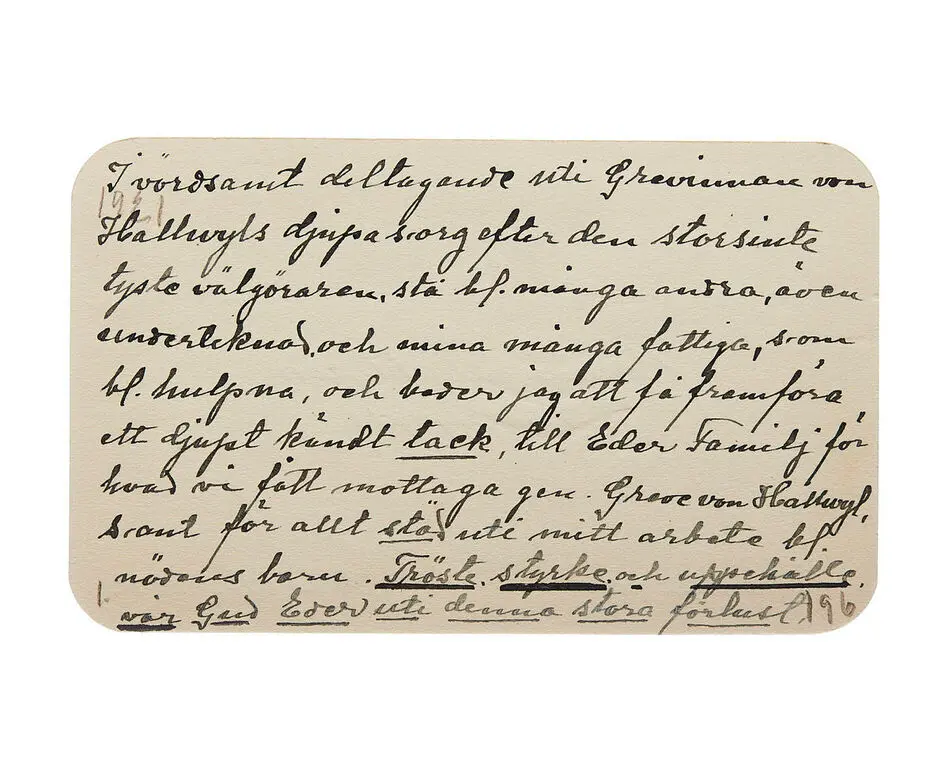 I vördsamt deltagande uti Grevinnan von
1921
Hallwyls djupa sorg efter den storsinte
tyste välgöraren, stå bl. många andra, även
underteknad, och mina många fattiga, som
bl. hulpna, och beder jag att få framföra
ett djupt kändt tack, till Eder Familj för
hvad vi fått mottaga gen. Greve von Hallwyl,
samt för allt stöd uti mitt arbete bl.
nödens barn. Tröste, styrke och uppehålle,
vår Gud Eder uti denna stora förlust.
1. 196